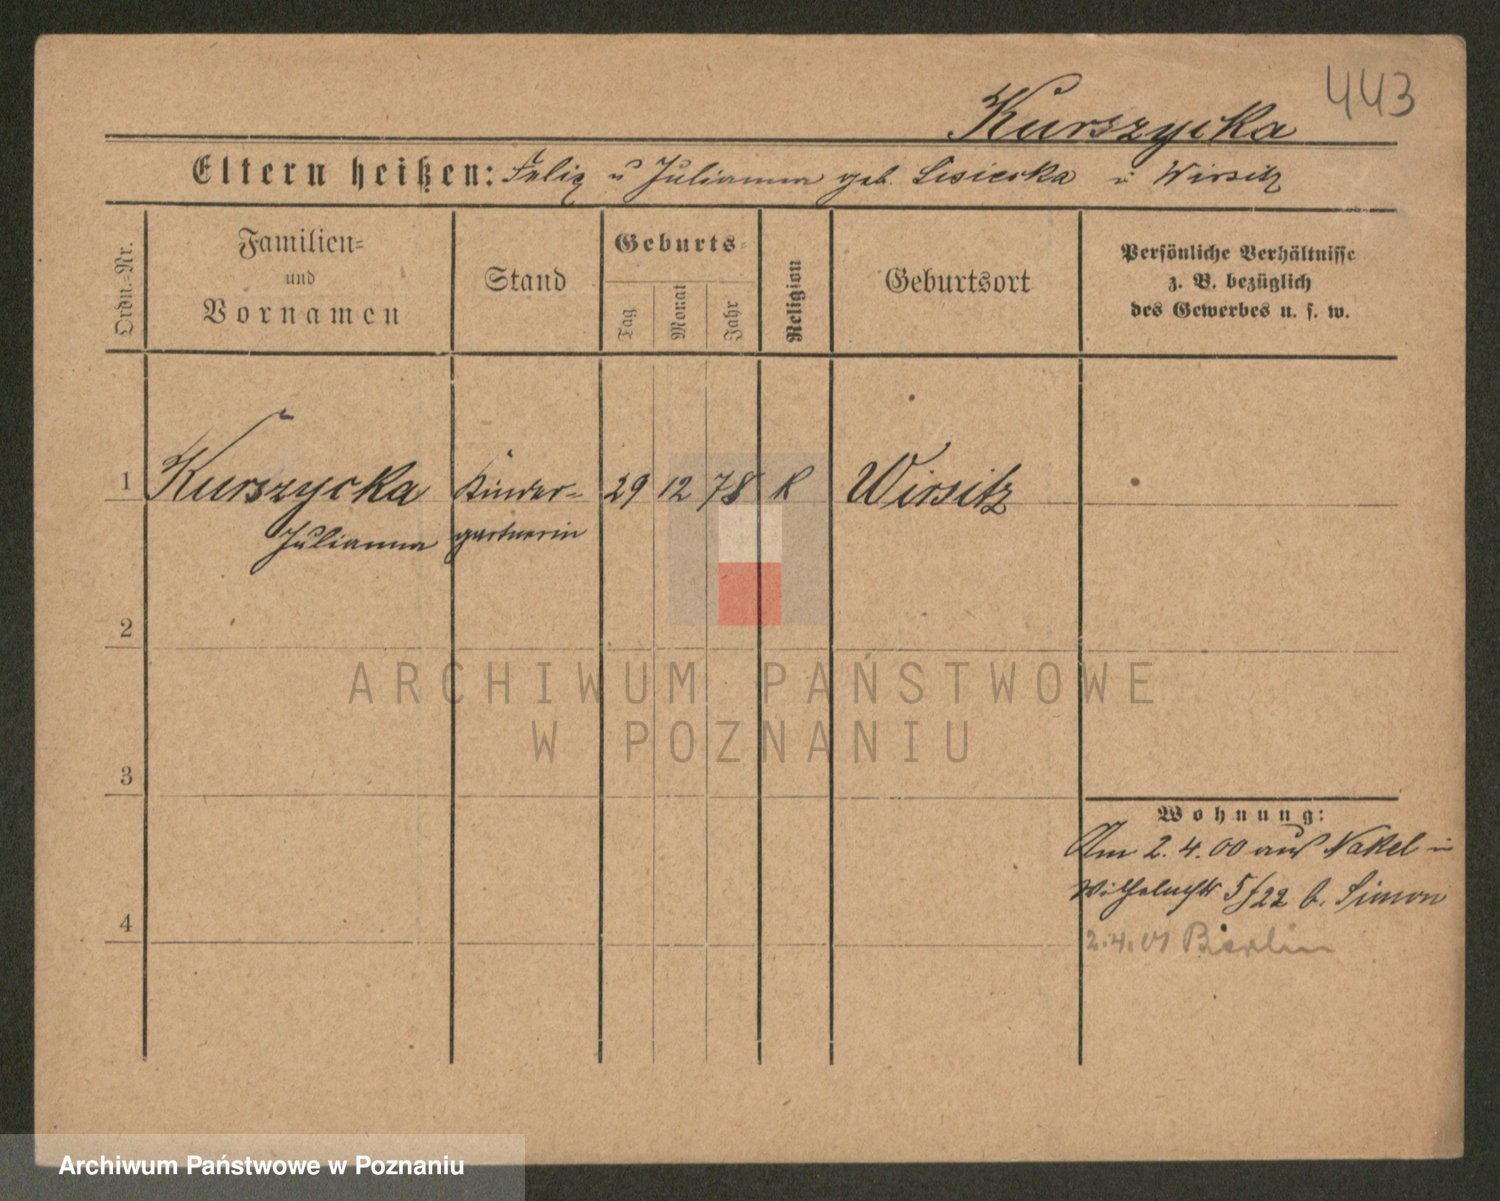 443
Kurszycka
Eltern heißen: Felix u Julianna geb. Lisiecka in Wirsitz
Ordn.=Nr.
Familien=
und
Vornamen
Stand
Geburts=
Tag
Monat
Jahr
Religion
Geburtsort
Persönliche Verhältnisse
z. B. bezüglich
des Gewerbes u. s. w.
1 Kurszycka Kinder= 29 12 78 K Wirsitz
Julianna gärtnerin
2
3
4
Wohnung:
Am 2. 4. 00 aus Nakel in
5/22 b. Simon
2.4.01 Berlin
ARCHIWUM PAŃSTWOWE
W POZNANIU
Archiwum Państwowe w Poznaniu